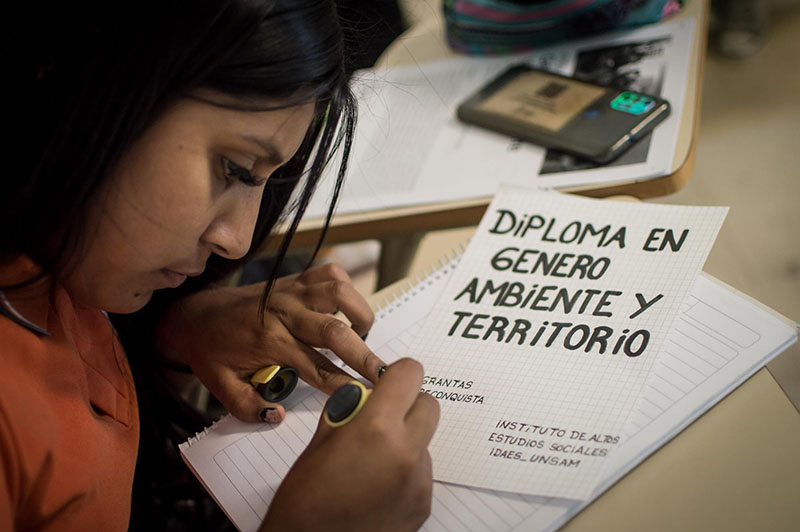 DIPLOMA EN
GENERO
AMBIENTE Y
TERRITORIO
GRANTAS
RECONQUISTA
INSTITUTO DE ALTOS
ESTUDIOS SOCIALES
IDAES_UNSAM